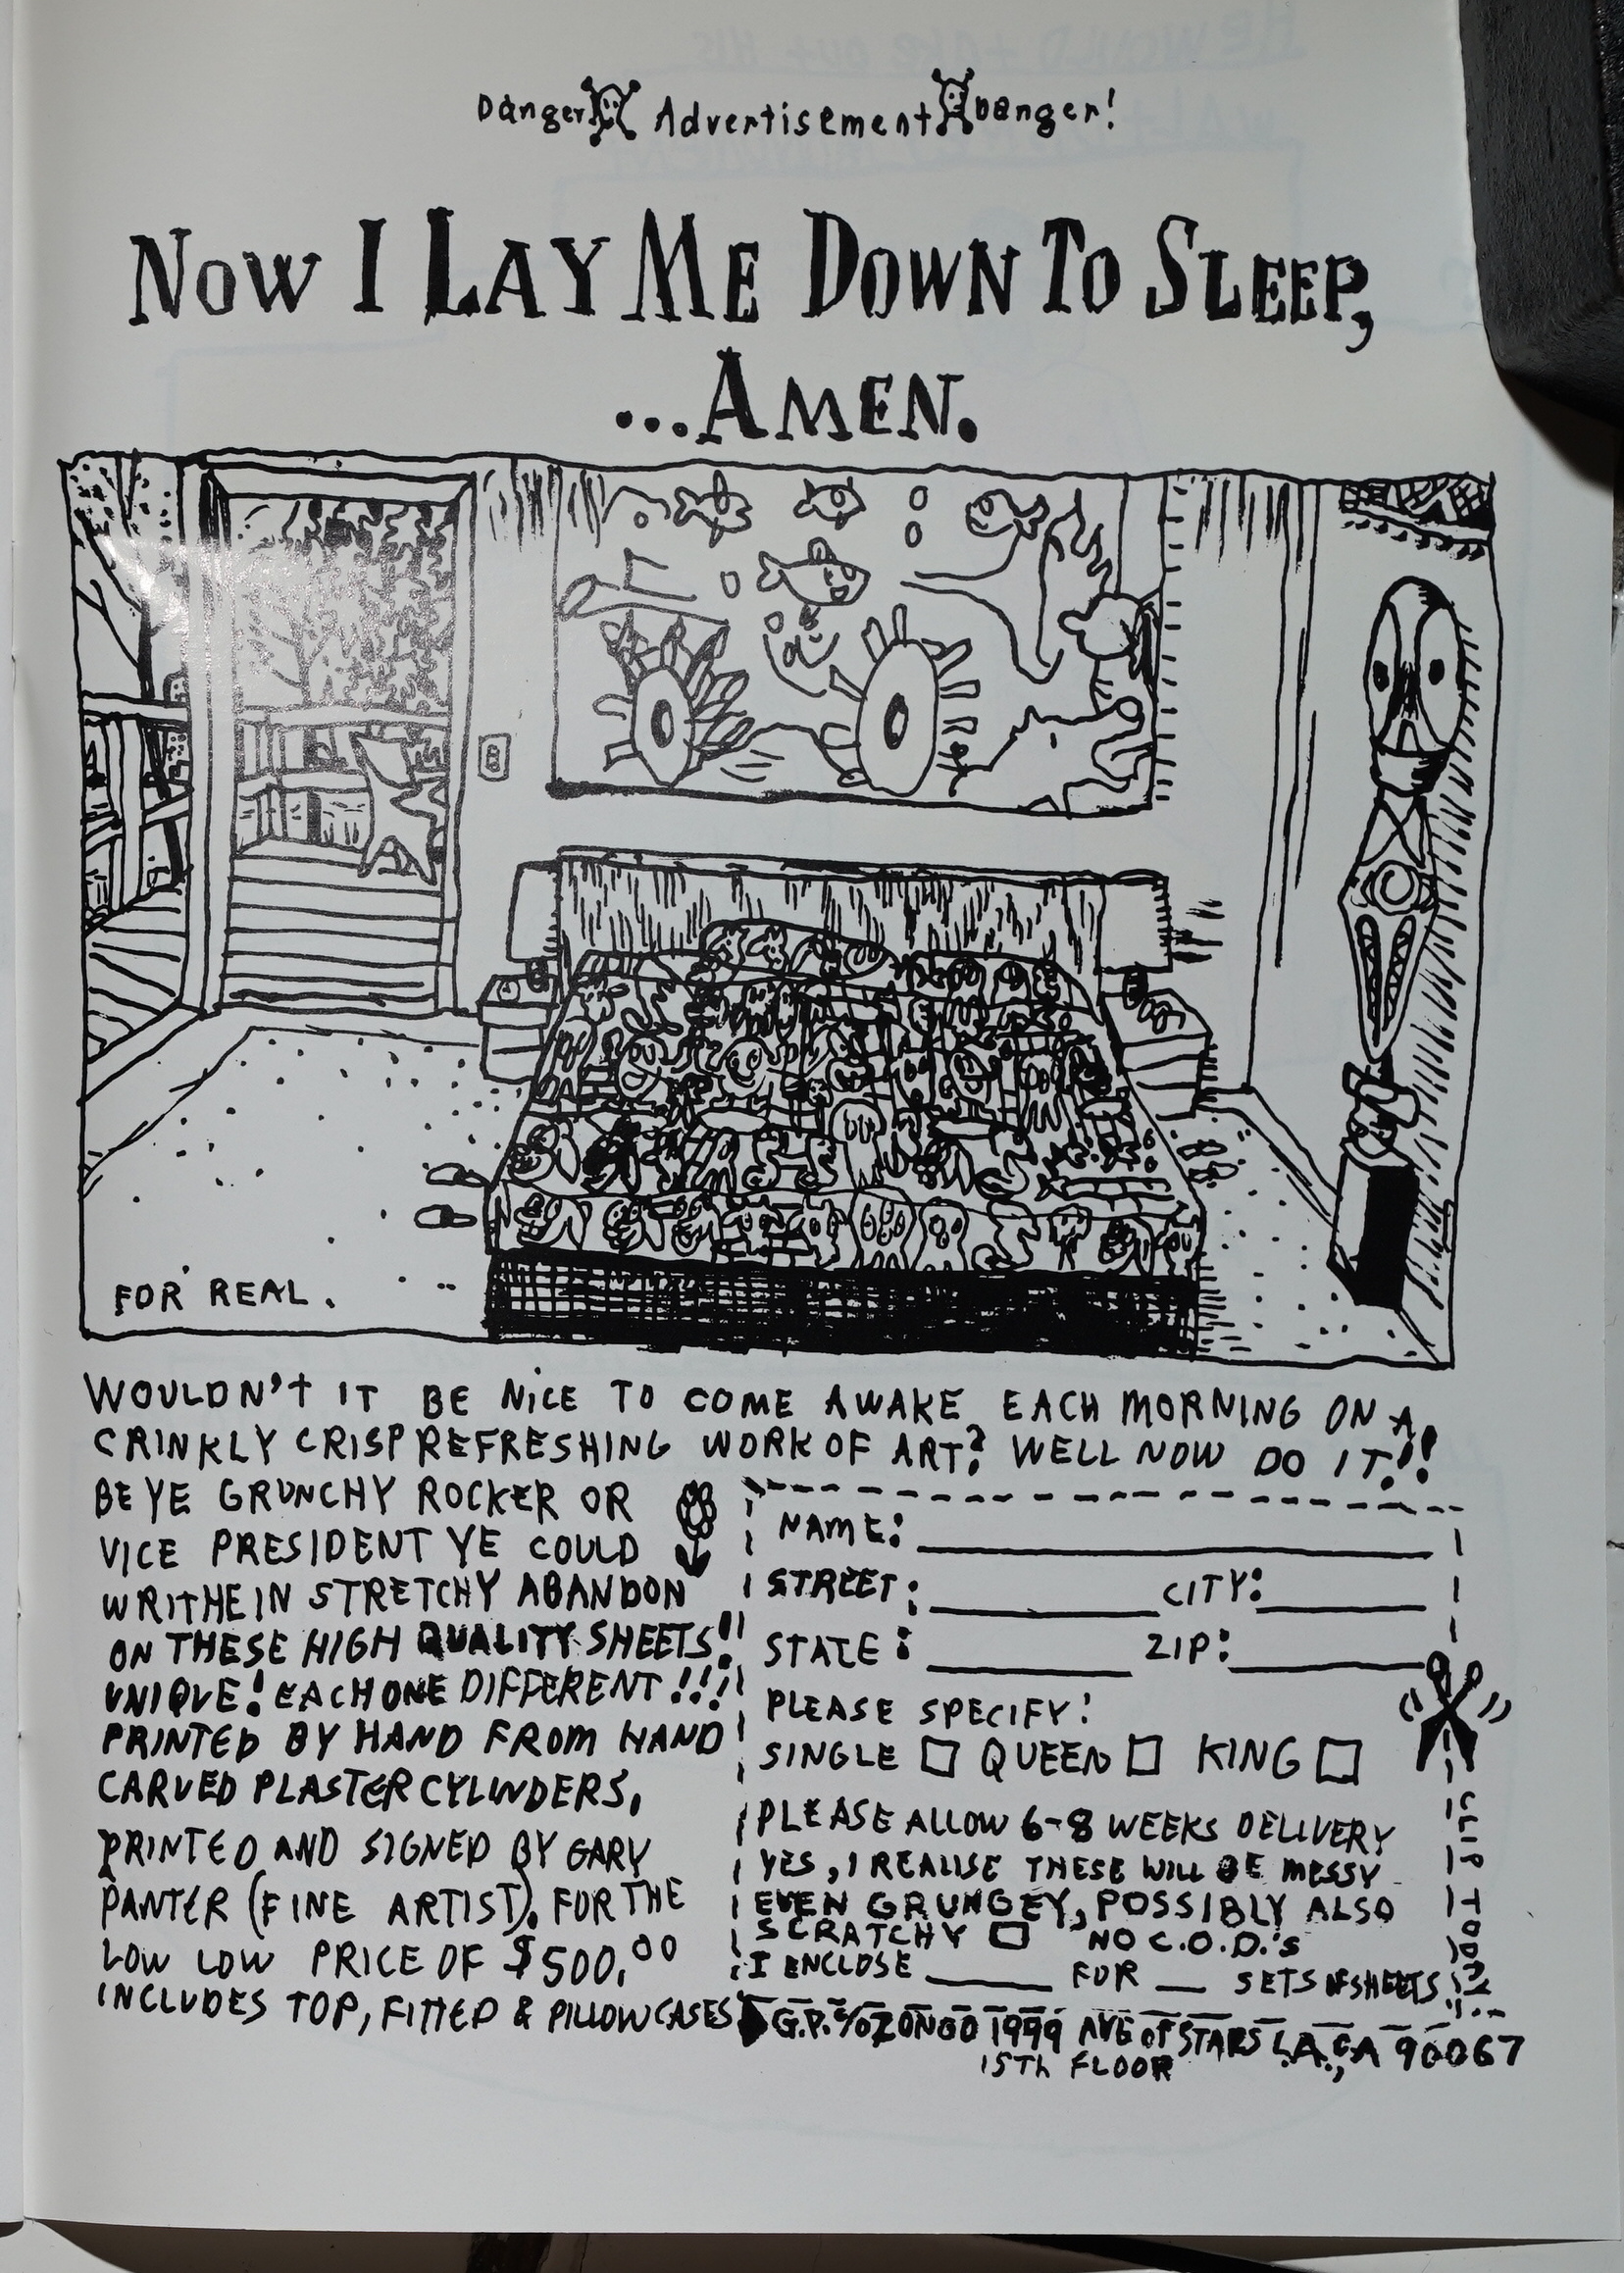 Danger Advertisement Danger!
NOW I LAY ME DOWN TO SLEEP,
...AMEN.
FOR REAL.
WOULDN't IT BE NiCE TO COME AWAKE EACH MORNING ON A
CRINKLY CRISP REFRESHING WORK OF ART? WELL NOW DO IT!!
BE YE GRUNCHY ROCKER OR
VICE PRESIDENT YE COULD
WRITHE IN STRETCHY ABANDON
ON THESE HIGH QUALITY SHEETS!!
UNIQUE! EACH ONE DIFFERENT!!!
PRINTED BY HAND FROM HAND
CARVED PLASTER CYLINDERS,
PRINTED AND SIGNED BY GARY
PANTER (FINE ARTIST). FOR THE
LOW LOW PRICE OF $500.00
INCLUDES TOP, FITTED & PILLOWCASES
NAME:
STREET: CITY:
STATE: ZIP:
PLEASE SPECIFY:
SINGLE QUEEN KING
PLEASE ALLOW 6-8 WEEKS DELIVERY
YES, I REALISE THESE WILL BE MESSY
EVEN GRUNGEY, POSSIBLY ALSO
SCRATCHY NO C.O.D.'S
I ENCLOSE ____ FOR __ SETS OF SHEETS
CLIP TODAY!
G.P. c/o ZONGO 1999 AVE OF STARS L.A., CA 90067
15Th FLOOR